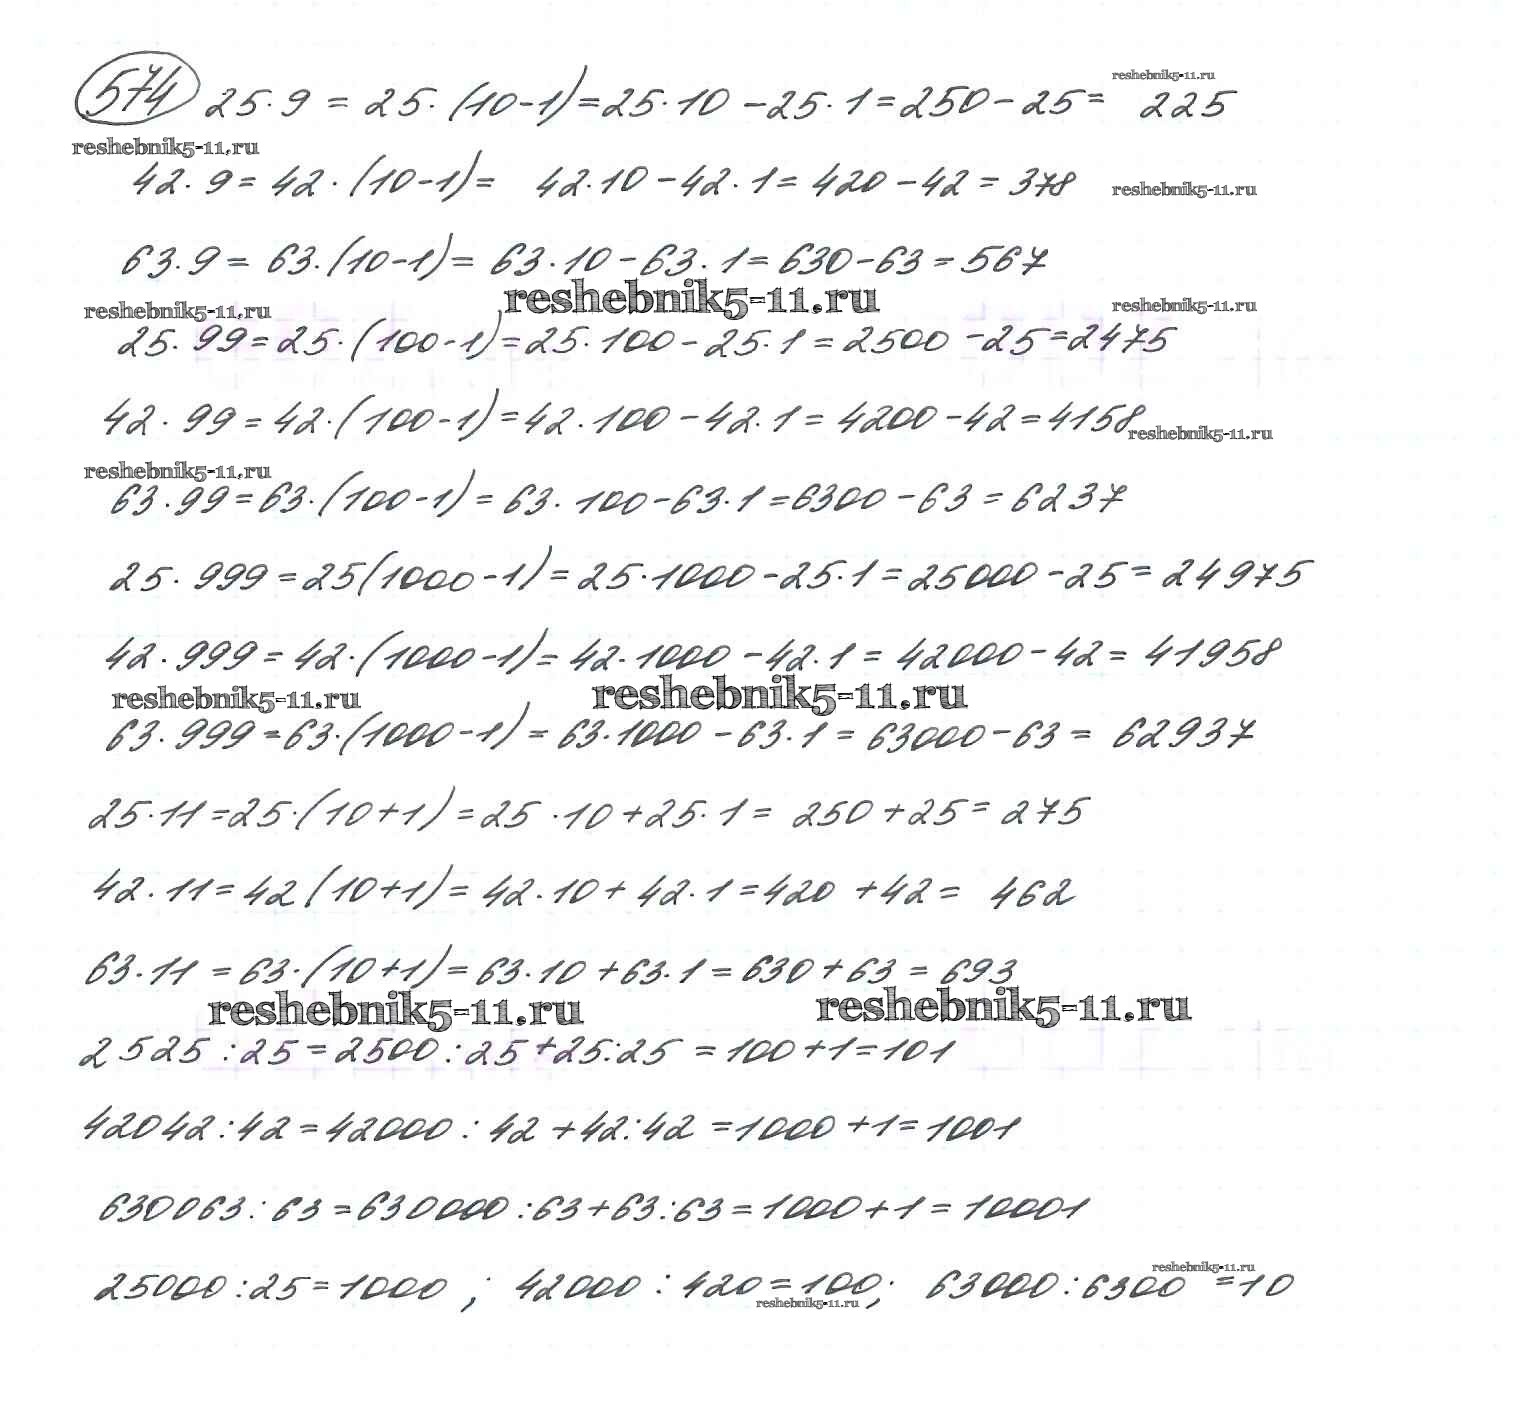 574 25·9 = 25·(10-1)=25·10-25·1=250-25= 225
reshebnik5-11.ru
reshebnik5-11.ru
42·9=42·(10-1)= 42·10-42·1=420-42=378
reshebnik5-11.ru
63·9= 63·(10-1)= 63·10-63·1=630-63=567
reshebnik5-11.ru
reshebnik5-11.ru
reshebnik5-11.ru
25·99=25·(100-1)=25·100-25·1=2500-25=2475
42·99=42·(100-1)=42·100-42·1=4200-42=4158
reshebnik5-11.ru
reshebnik5-11.ru
63·99=63·(100-1)=63·100-63·1=6300-63=6237
25·999=25(1000-1)=25·1000-25·1=25000-25=24975
42·999=42·(1000-1)=42·1000-42·1=42000-42=41958
reshebnik5-11.ru
reshebnik5-11.ru
63·999=63·(1000-1)=63·1000-63·1=63000-63=62937
25·11=25·(10+1)=25·10+25·1= 250+25=275
42·11=42(10+1)=42·10+42·1=420+42= 462
63·11=63·(10+1)=63·10+63·1=630+63=693
reshebnik5-11.ru
reshebnik5-11.ru
2525:25=2500:25+25:25=100+1=101
42042:42=42000:42+42:42=1000+1=1001
630063:63=630000:63+63:63=1000+1=10001
reshebnik5-11.ru
25000:25=1000 ; 42000:420=100; 63000:6300=10
reshebnik5-11.ru